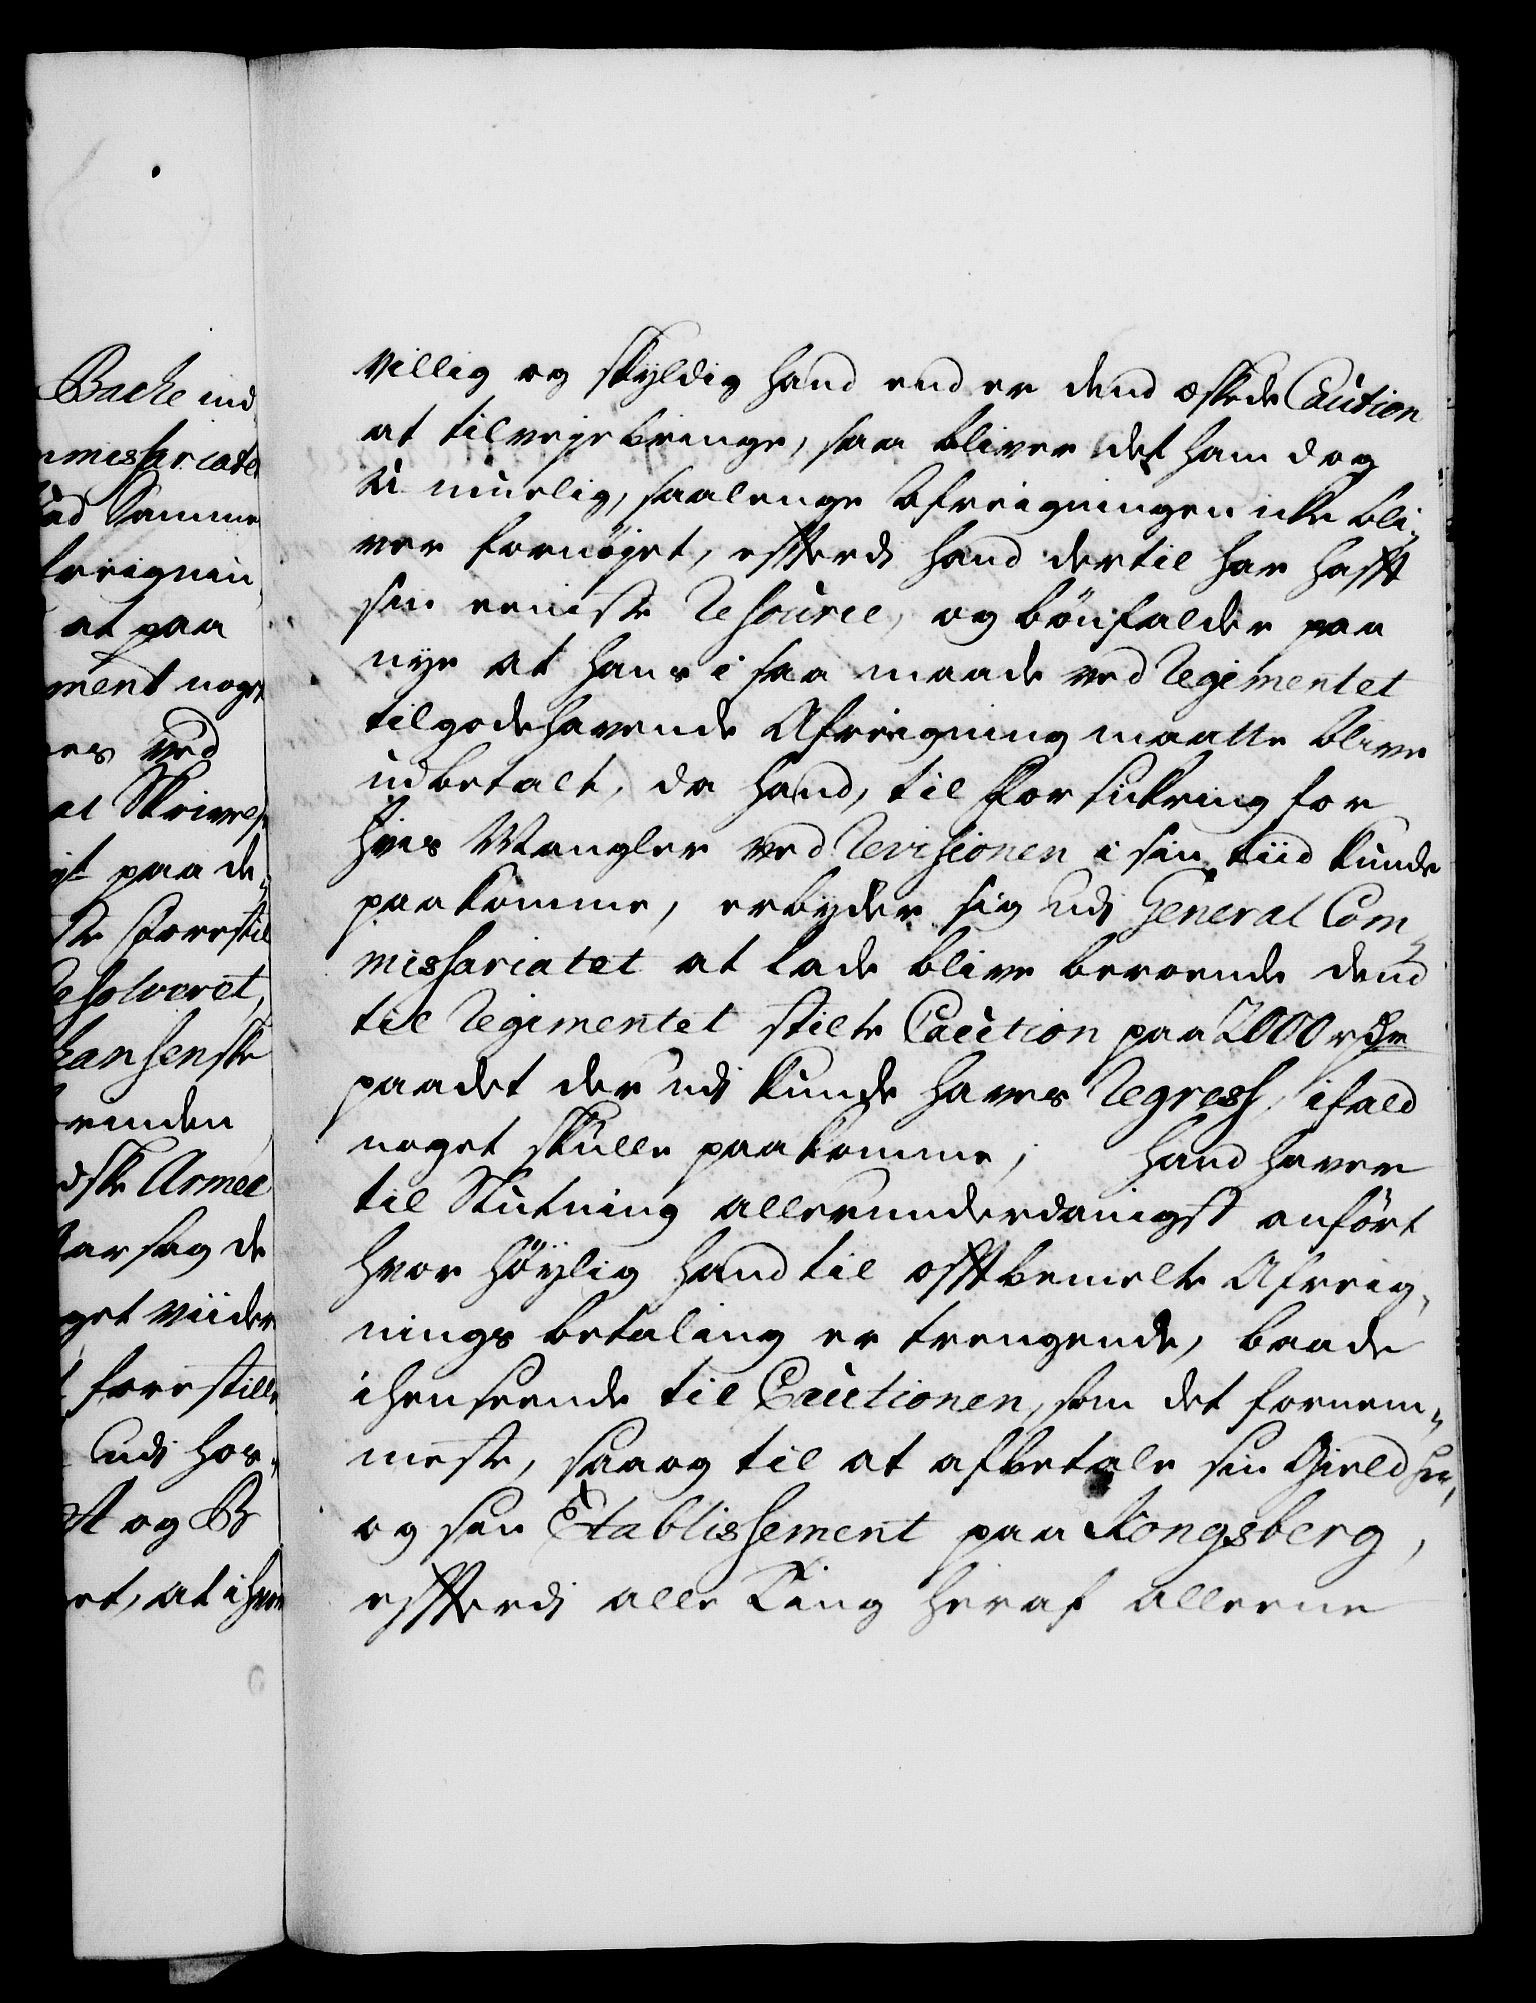 Backe ind
mmissariatet
ad Samme
freignin
at paa
ment noget
es ved
al Skrivelse
yt paa de
ste Forestil
Resolveret,
hansenske
renden
dske Armee
aarsag de
get viider
forestille
udi hos-
A og B
et, at ihvor
villig og skyldig hand end er dend æskede Caution
at tilvejebringe, saa bliver det ham dog
u muelig, saalenge Afreigningen icke bli-
ver fornöjet, efftterdi hand dertil har hafft
sin eeniste Resource, og bönfalder paa
nye at hans i saa maade ved Regimentet
tilgodehavende Afreigning maatte blive
udbetalt, da hand, til Forsickring for
hvis Mangler ved Revisionen i sin tiid kunde
paakomme, erbyder sig udi General Com-
missariatet at lade blive beroende dend
til Regimentet stilte Caution paa 2000 rdr
paadet der udi kunde haves Regress, ifald
noget skulle paakomme; Hand haver
til Slutning allerunderdanigst anfört
hvor höylig hand til offtbemelte Afreig-
nings betaling er trengende, baade
ihenseende til Cautionen, som det fornem-
meste, saa og til at afbetale sin Gield her,
og sin Etablissement paa Kongsberg,
effterdi alle Ting heraf alleene